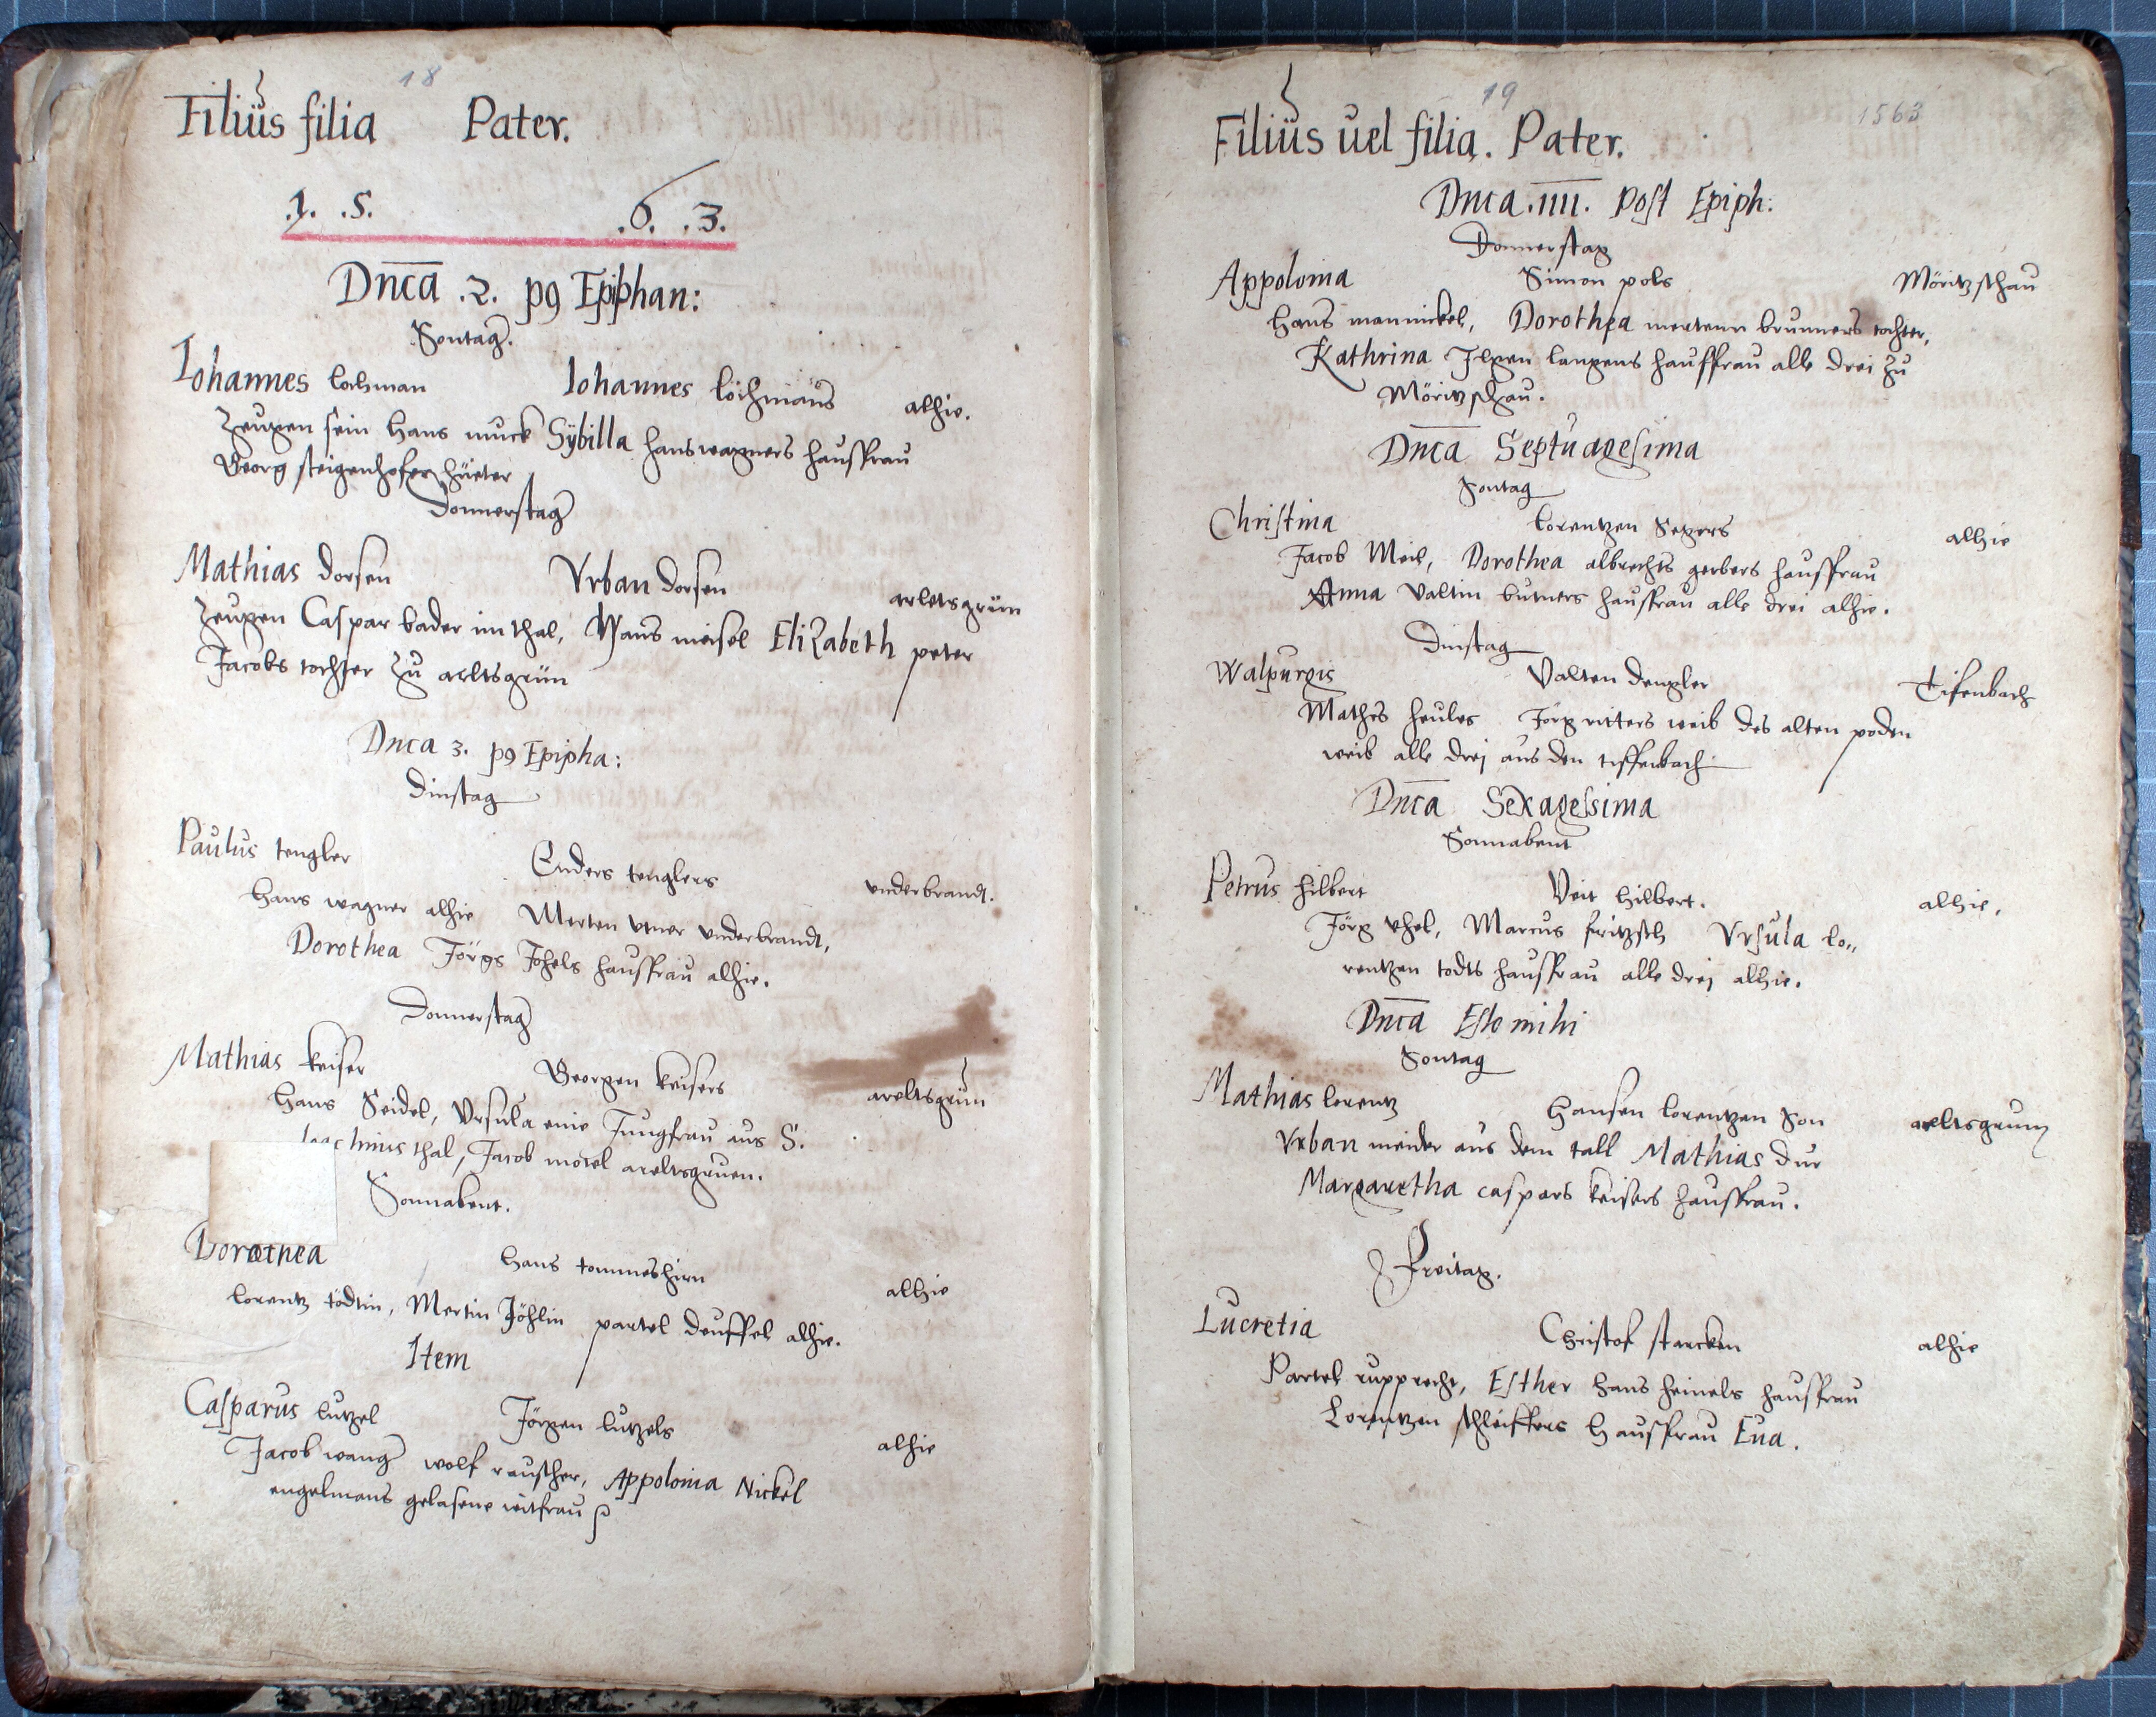 18
Filius filia Pater.
.1. .5. .6. .3.
Dnca .2. p9 Epiphan:
Sontag.
Iohannes lochman Iohannes lochmans alhie.
Zeugen sein Hans muck Sybilla hans wagners hausfrau
Georg steigenhofer hüeter
Donnerstag
Mathias dorsen Vrban dorsen arletsgrün
Zeugen Caspar bader im thal, Hans meisel Elizabeth peter
Jacobs tochter zu arltsgrün
Dnca 3. p9 Epipha:
Dinstag
Paulus tengler Enders tenglers vnderbrandt.
Hans wagner alhie Merten vtner vnderbrandt,
Dorothea Jörgs Johels hausfrau alhie.
Donnerstag
Mathias keiser Georgen keisers areltsgrün
Hans Seidel, Vrsula eine Jungfrau aus S.
thal, Jacob motel areltsgruen.
Sonnabent.
Dorothea Hans tommeshirn alhie
lorentz todtin, Mertin Jöhlin partel deuffel alhie.
Item
Casparus lutzel Jörgen lutzels alhie
Jacob wang wolf rauscher, Appolonia Nickel
engelmans gelasene witfrau
19
1563
Filius uel filia. Pater.
Dnca .IIII. post Epiph:
Donnerstag
Appolonia Simon pols Möritzschau
Hans mannickel, Dorothea mertenn brunners tochter,
Kathrina Ilgen langens hausfrau alle drei zu
Möritzschau.
Dnca Septuagesima
Sontag
Christina lorentzen Segers alhie
Jacob Meil, Dorothea albrechts gerbers hausfrau
Anna Valtin butners hausfrau alle drei alhie.
Dinstag
Walpurgis Valten dengler Tifenbach
Mathes heules Jörg ritters weib des alten poden
weib alle drej aus den tiffenbach
Dnca Sexagesima
Sonnabent
Petrus hilbert Veit hilbert. alhie.
Jörg vhel, Marcus fritzsch Vrsula lo„
rentzen todts hausfrau alle drej alhie.
Dnca Esto mihi
Sontag
Mathias lorentz Hansen lorentzen Son areltsgrun
Vrban meider aus dem tall Mathias dur
Margaretha caspars keisers hausfrau.
Freitag.
Lucretia Christof starcken alhie
Partel rupprecht, Esther Hans heinels hausfrau
Lorentzen schleiffers Hausfrau Eua.